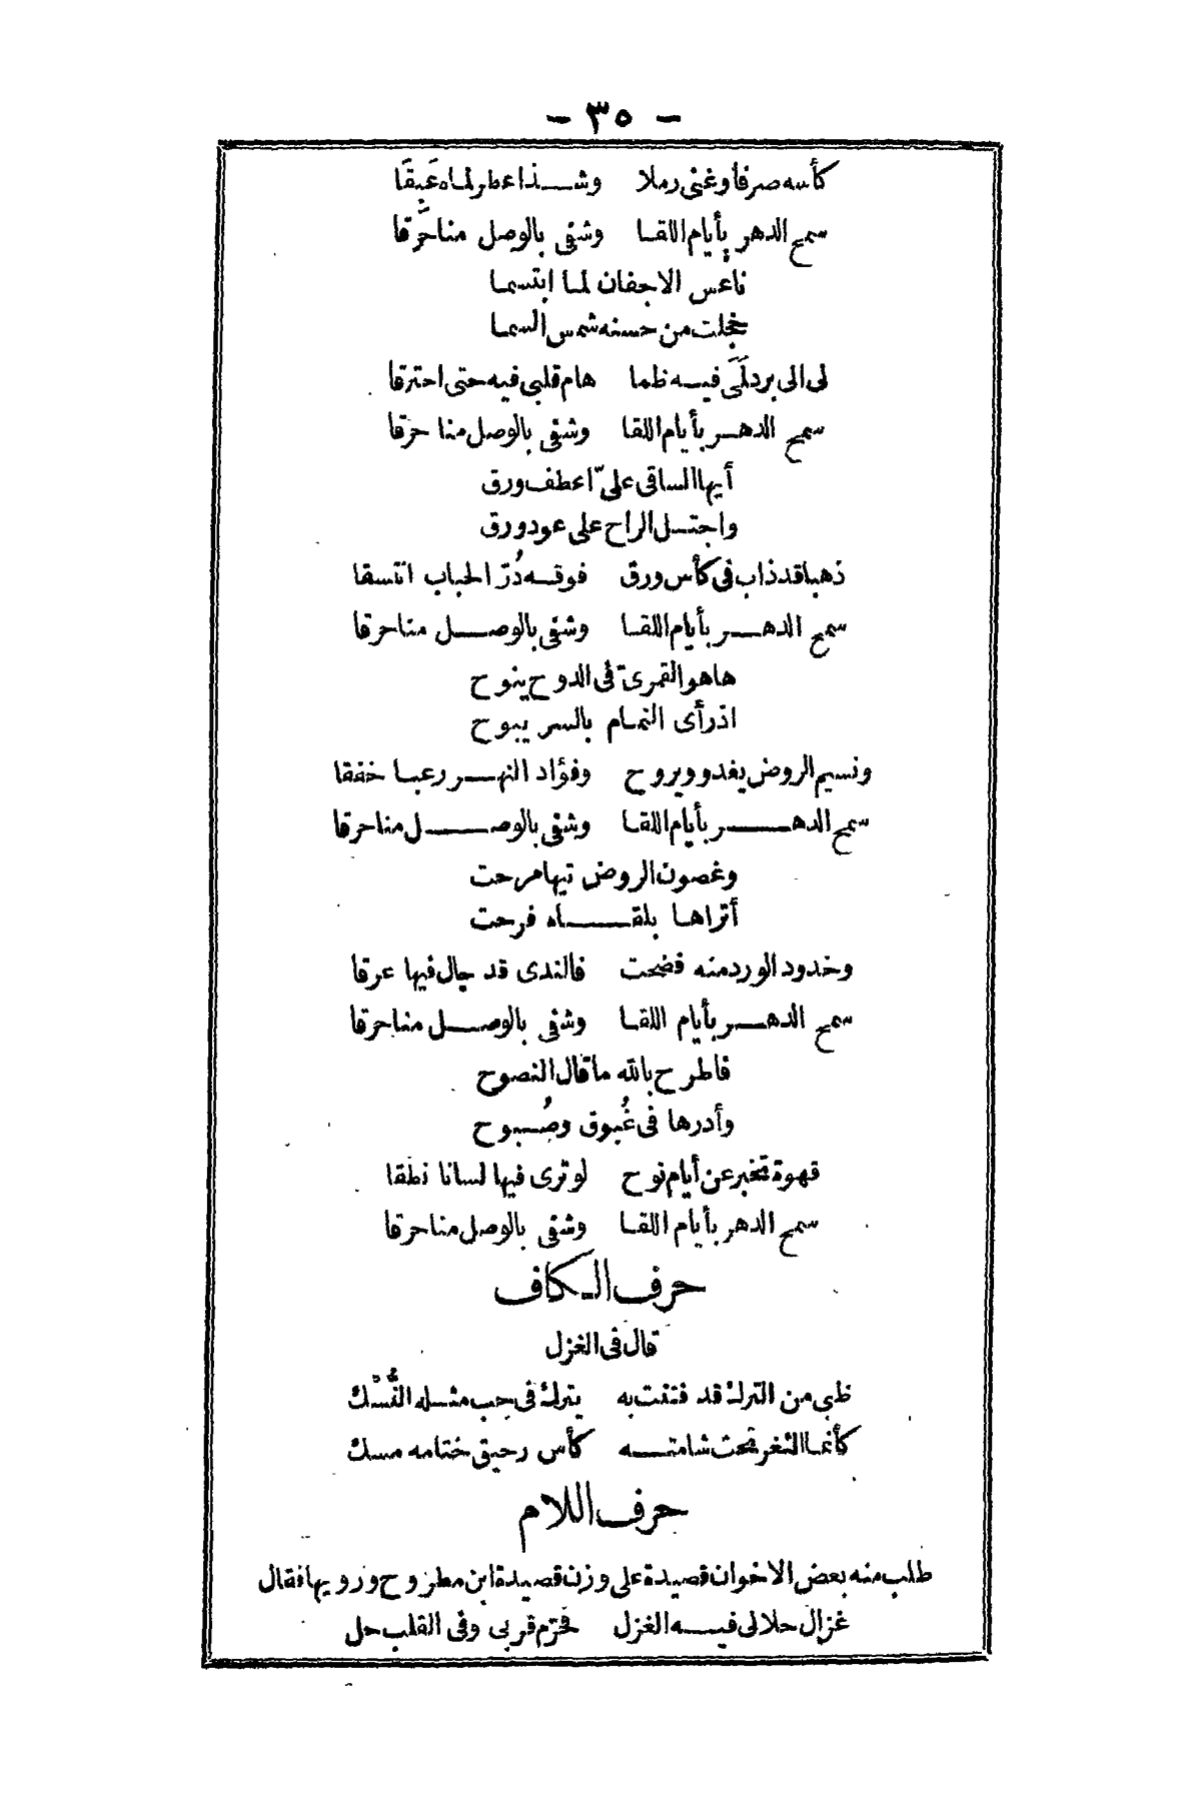 - ٣٥ -
كأسه صرفا وغنى رملا وشـذا عطر لماه عَبِقَا
سمح الدهر بأيام اللقـا وشفى بالوصل منا حُرَقا
ناعس الاجفان لمـا ابتسمـا
خجلت من حسنه شمس السمـا
لى الى برد لَمَى فيـه ظما هام قلبى فيه حتى احترقا
سمح الدهـر بأيام اللقا وشفى بالوصل منا حرقا
أيها الساقى علىّ اعطف ورق
واجتـل الراح على عود ورق
ذهبا قد ذاب فى كأس ورق فوقـه دُرّ الحباب اتسقا
سمح الدهـر بأيام اللقـا وشفى بالوصـل منا حرقا
ها هو القمرىّ فى الدوح ينوح
اذ رأى النمـام بالسر يبوح
ونسيم الروض يغدو ويروح وفؤاد النهـر رعبـا خفقا
سمح الدهـر بأيام اللقـا وشفى بالوصـل منا حرقا
وغصون الروض تيها مرحت
أتراهـا بلقـاه فرحت
وخدود الورد منه فضحت فالندى قد جال فيها عرقا
سمح الدهـر بأيام اللقـا وشفى بالوصـل منا حرقا
فاطرح بالله ما قال النصوح
وأدرها فى غُبوق وصُبوح
قهوة تخبر عن أيام نوح لو ترى فيها لسانا نطقا
سمح الدهر بأيام اللقـا وشفى بالوصل منا حرقا
حرف الـكاف
قال فى الغزل
ظبى من الترك قد فتنت به يترك فى حب مثـله النُّسْك
كأنمـا الثغر تحت شامتـه كأس رحيق ختامه مسك
حرف اللام
طلب منه بعض الاخوان قصيدة على وزن قصيدة ابن مطروح ورويها فقال
غزال حلا لى فيـه الغزل فحرّم قربى وفى القلب حل